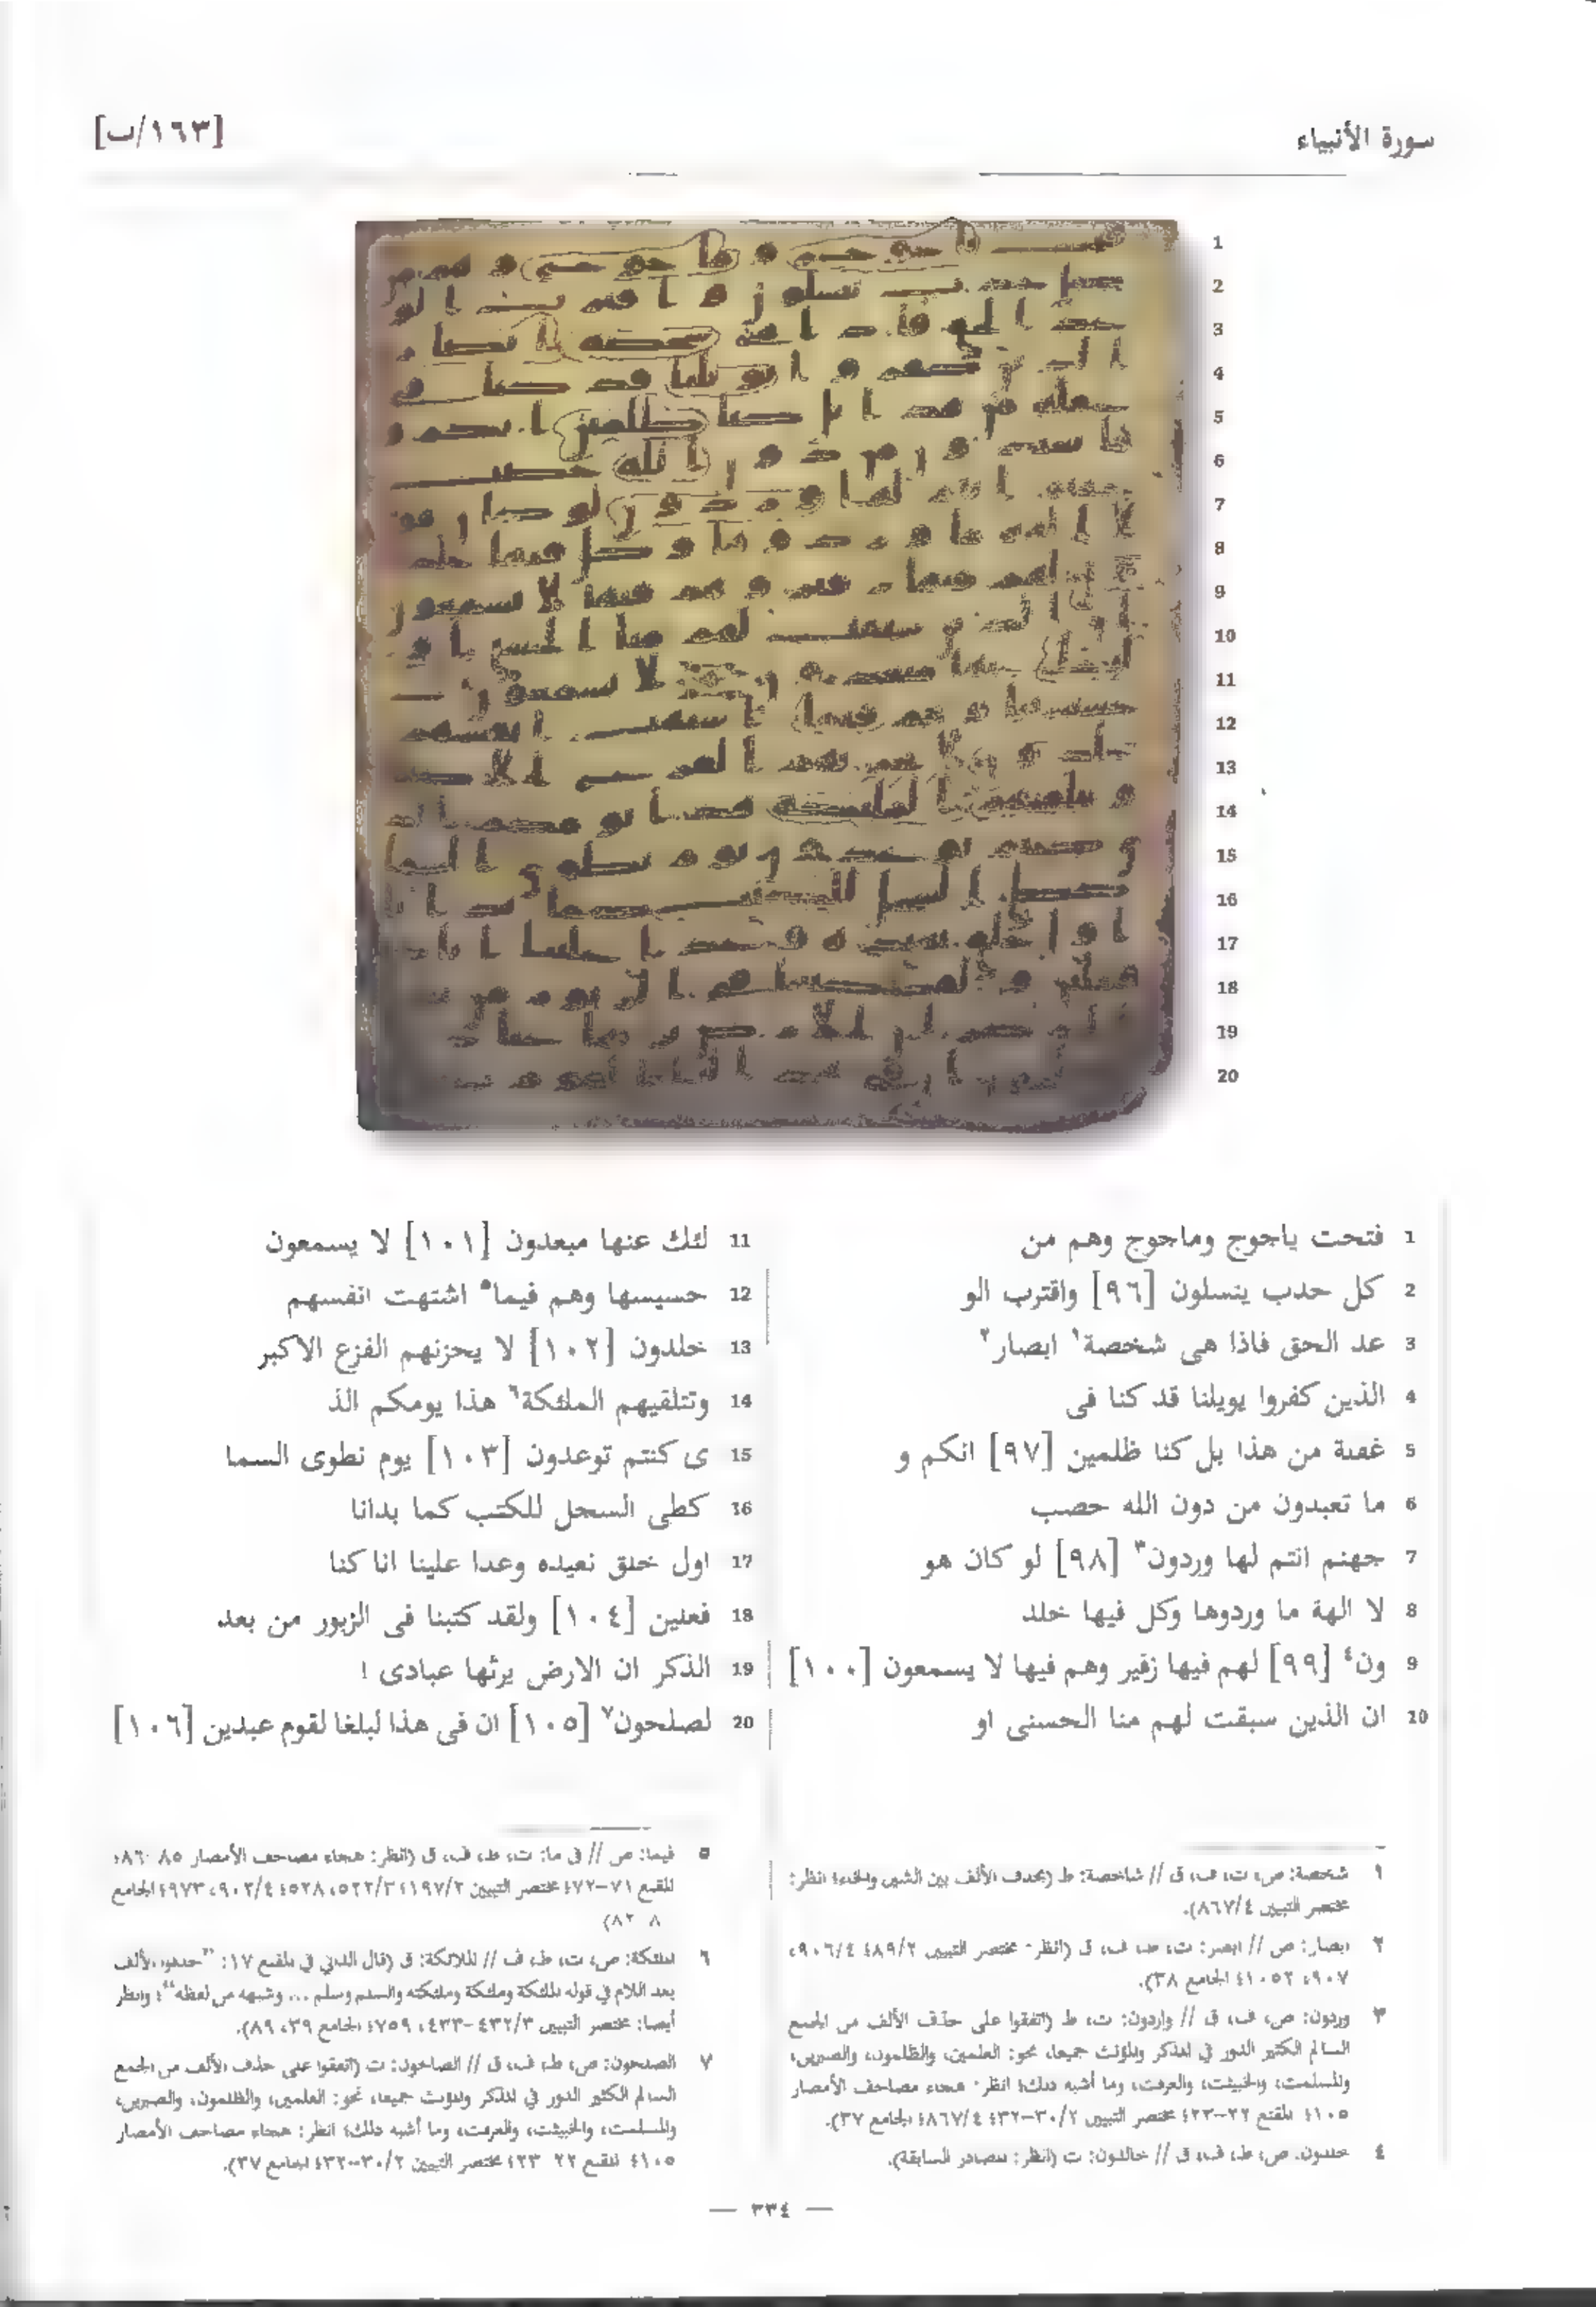 سورة الأنبياء
[١٦٣/ب]
1
2
3
4
5
6
7
8
9
10
11
12
13
14
15
16
17
18
19
20
1 فتحت ياجوج وماجوج وهم من
2 كل حدب ينسلون [٩٦] واقترب الو
3 عد الحق فاذا هى شخصة١ ابصار٢
4 الذين كفروا يويلنا قد كنا فى
5 غفلة من هذا بل كنا ظلمين [٩٧] انكم و
6 ما تعبدون من دون الله حصب
7 جهنم انتم لها وردون٣ [٩٨] لو كان هو
8 لا الهة ما وردوها وكل فيها خلد
9 ون٤ [٩٩] لهم فيها زفير وهم فيها لا يسمعون [١٠٠]
10 ان الذين سبقت لهم منا الحسنى او
11 لئك عنها مبعدون [١٠١] لا يسمعون
12 حسيسها وهم فيما٥ اشتهت انفسهم
13 خلدون [١٠٢] لا يحزنهم الفزع الاكبر
14 وتتلقيهم الملئكة٦ هذا يومكم الذ
15 ى كنتم توعدون [١٠٣] يوم نطوى السما
16 كطى السجل للكتب كما بدانا
17 اول خلق نعيده وعدا علينا انا كنا
18 فعلين [١٠٤] ولقد كتبنا فى الزبور من بعد
19 الذكر ان الارض يرثها عبادى ا
20 لصلحون٧ [١٠٥] ان فى هذا لبلغا لقوم عبدين [١٠٦]
١ شخصة: ص، ت، ف، ق // شاخصة: ط (بحذف الألف بين الشين والخاء؛ انظر:
مختصر التبيين ٨٦٧/٤).
٢ ابصار: ص // ابصر: ت، ط، ف، ق (انظر: مختصر التبيين ٤٨٩/٢، ٩٠٦/٤،
٩٠٧، ١٠٥٢؛ الجامع ٣٨).
٣ وردون: ص، ف، ق // واردون: ت، ط (اتفقوا على حذف الألف من الجمع
السالم الكثير الدور في المذكر والمؤنث جميعا، نحو: العلمين، والظلمون، والصبرين،
والمسلمت، والخبيثت، والغرفت، وما أشبه ذلك؛ انظر: هجاء مصاحف الأمصار
١٠٥؛ المقنع ٢٢-٢٣؛ مختصر التبيين ٣٠/٢-٣٢، ٨٦٧/٤؛ الجامع ٣٧).
٤ خلدون: ص، ط، ف، ق // خالدون: ت (انظر: المصادر السابقة).
٥ فيما: ص // فى ما: ت، ط، ف، ق (انظر: هجاء مصاحف الأمصار ٨٥-٨٦؛
المقنع ٧١-٧٢؛ مختصر التبيين ١٩٧/٢، ٥٢٢/٣، ٥٢٨، ٩٠٢/٤، ٩٧٣؛ الجامع
٨٢-٨٠)
٦ الملئكة: ص، ت، ط، ف // الملائكة: ق (قال الداني في المقنع ١٧: "حذفوا الألف
بعد اللام في قوله الملئكة وملئكة وملئكته والسلم وسلم ... وشبهه من لفظه"؛ وانظر
أيضا: مختصر التبيين ٤٣٢/٣-٤٣٣، ٧٥٩؛ الجامع ٣٩، ٨٩).
٧ الصلحون: ص، ط، ف، ق // الصالحون: ت (اتفقوا على حذف الألف من الجمع
السالم الكثير الدور في المذكر والمؤنث جميعا، نحو: العلمين، والظلمون، والصبرين،
والمسلمت، والخبيثت، والغرفت، وما أشبه ذلك؛ انظر: هجاء مصاحف الأمصار
١٠٥؛ المقنع ٢٢-٢٣؛ مختصر التبيين ٣٠/٢-٣٢؛ الجامع ٣٧).
— ٣٣٤ —